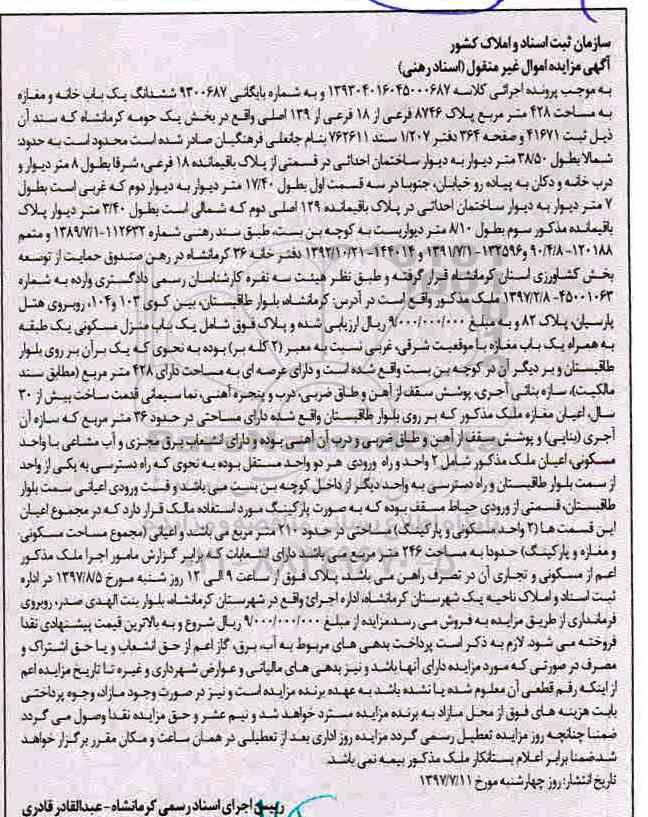 سازمان ثبت اسناد و املاک کشور
آگهی مزایده اموال غیر منقول (اسناد رهنی)
به موجب پرونده اجرائی کلاسه ۱۳۹۳۰۴۰۱۶۰۴۵۰۰۰۶۸۷ و به شماره بایگانی ۹۳۰۰۶۸۷ ششدانگ یک باب خانه و مغازه
به مساحت ۴۲۸ متر مربع پلاک ۸۷۴۶ فرعی از ۱۸ فرعی از ۱۳۹ اصلی واقع در بخش یک حومه کرمانشاه که سند آن
ذیل ثبت ۴۱۶۷۱ و صفحه ۳۶۴ دفتر ۱/۲۰۷ سند ۷۶۲۶۱۱ بنام جانعلی فرهنگیان صادر شده است محدود است به حدود:
شمالا بطول ۳۸/۵۰ متر دیوار به دیوار ساختمان احداثی در قسمتی از پلاک باقیمانده ۱۸ فرعی، شرقا بطول ۸ متر دیوار و
درب خانه و دکان به پیاده رو خیابان، جنوبا در سه قسمت اول بطول ۱۷/۴۰ متر دیوار به دیوار دوم که غربی است بطول
۷ متر دیوار به دیوار ساختمان احداثی در پلاک باقیمانده ۱۳۹ اصلی دوم که شمالی است بطول ۳/۴۰ متر دیوار پلاک
باقیمانده مذکور سوم بطول ۸/۱۰ متر دیواریست به کوچه بن بست، طبق سند رهنی شماره ۱۱۲۶۳۲-۱۳۸۹/۷/۱ و متمم
۱۲۰۱۸۸-۹۰/۴/۸ و ۱۳۲۵۹۶-۱۳۹۱/۷/۱ و ۱۴۴۰۱۴-۱۳۹۲/۱۰/۲۱ دفتر خانه ۳۶ کرمانشاه در رهن صندوق حمایت از توسعه
بخش کشاورزی استان کرمانشاه قرار گرفته و طبق نظر هیئت سه نفره کارشناسان رسمی دادگستری وارده به شماره
۴۵۰۰۱۰۶۳-۱۳۹۷/۲/۸ ملک مذکور واقع است در آدرس: کرمانشاه، بلوار طاقبستان، بین کوی ۱۰۳ و ۱۰۴، روبروی هتل
پارسیان، پلاک ۸۲ و به مبلغ ۹/۰۰۰/۰۰۰/۰۰۰ ریال ارزیابی شده و پلاک فوق شامل یک باب منزل مسکونی یک طبقه
به همراه یک باب مغازه با موقعیت شرقی، غربی نسبت به معبر (۲ کله بر) بوده به نحوی که یک بر آن بر روی بلوار
طاقبستان و بر دیگر آن در کوچه بن بست واقع شده است و دارای عرصه ای به مساحت دارای ۴۲۸ متر مربع (مطابق سند
مالکیت)، سازه بنائی آجری، پوشش سقف از آهن و طاق ضربی، درب و پنجره آهنی، نما سیمانی قدمت ساخت بیش از ۳۰
سال، اعیان مغازه ملک مذکور که بر روی بلوار طاقبستان واقع شده دارای مساحتی در حدود ۳۶ متر مربع که سازه آن
آجری (بنایی) و پوشش سقف از آهن و طاق ضربی و درب آن آهنی بوده و دارای انشعاب برق مجزی و آب مشاعی با واحد
مسکونی، اعیان ملک مذکور شامل ۲ واحد و راه ورودی هر دو واحد مستقل بوده به نحوی که راه دسترسی به یکی از واحد
از سمت بلوار طاقبستان و راه دسترسی به واحد دیگر از داخل کوچه بن بست می باشد و قسمت ورودی اعیانی سمت بلوار
طاقبستان، قسمتی از ورودی حیاط مسقف بوده که به صورت پارکینگ مورد استفاده مالک قرار دارد که در مجموع اعیان
این قسمت ها (۲ واحد مسکونی و پارکینگ) مساحتی در حدود ۲۱۰ متر مربع می باشد و اعیانی (مجموع مساحت مسکونی
و مغازه و پارکینگ) حدودا به مساحت ۲۴۶ متر مربع می باشد دارای انشعابات که برابر گزارش مامور اجرا ملک مذکور
اعم از مسکونی و تجاری آن در تصرف راهن می باشد. پلاک فوق از ساعت ۹ الی ۱۲ روز شنبه مورخ ۱۳۹۷/۸/۵ در اداره
ثبت اسناد و املاک ناحیه یک شهرستان کرمانشاه، اداره اجرای واقع در شهرستان کرمانشاه، بلوار بنت الهدی صدر، روبروی
فرمانداری از طریق مزایده به فروش می رسد.مزایده از مبلغ ۹/۰۰۰/۰۰۰/۰۰۰ ریال شروع و به بالاترین قیمت پیشنهادی نقدا
فروخته می شود. لازم به ذکر است پرداخت بدهی های مربوط به آب، برق، گاز اعم از حق انشعاب و یا حق اشتراک و
مصرف در صورتی که مورد مزایده دارای آنها باشد و نیز بدهی های مالیاتی و عوارض شهرداری و غیره تا تاریخ مزایده اعم
از اینکه رقم قطعی آن معلوم شده یا نشده باشد به عهده برنده مزایده است و نیز در صورت وجود مازاد، وجوه پرداختی
بابت هزینه های فوق از محل مازاد به برنده مزایده مسترد خواهد شد و نیم عشر و حق مزایده نقدا وصول می گردد
ضمنا چنانچه روز مزایده تعطیل رسمی گردد مزایده روز اداری بعد از تعطیلی در همان ساعت و مکان مقرر برگزار خواهد
شد.ضمنا برابر اعلام بستانکار ملک مذکور بیمه نمی باشد.
تاریخ انتشار: روز چهارشنبه مورخ ۱۳۹۷/۷/۱۱
رییس اجرای اسناد رسمی کرمانشاه - عبدالقادر قادری